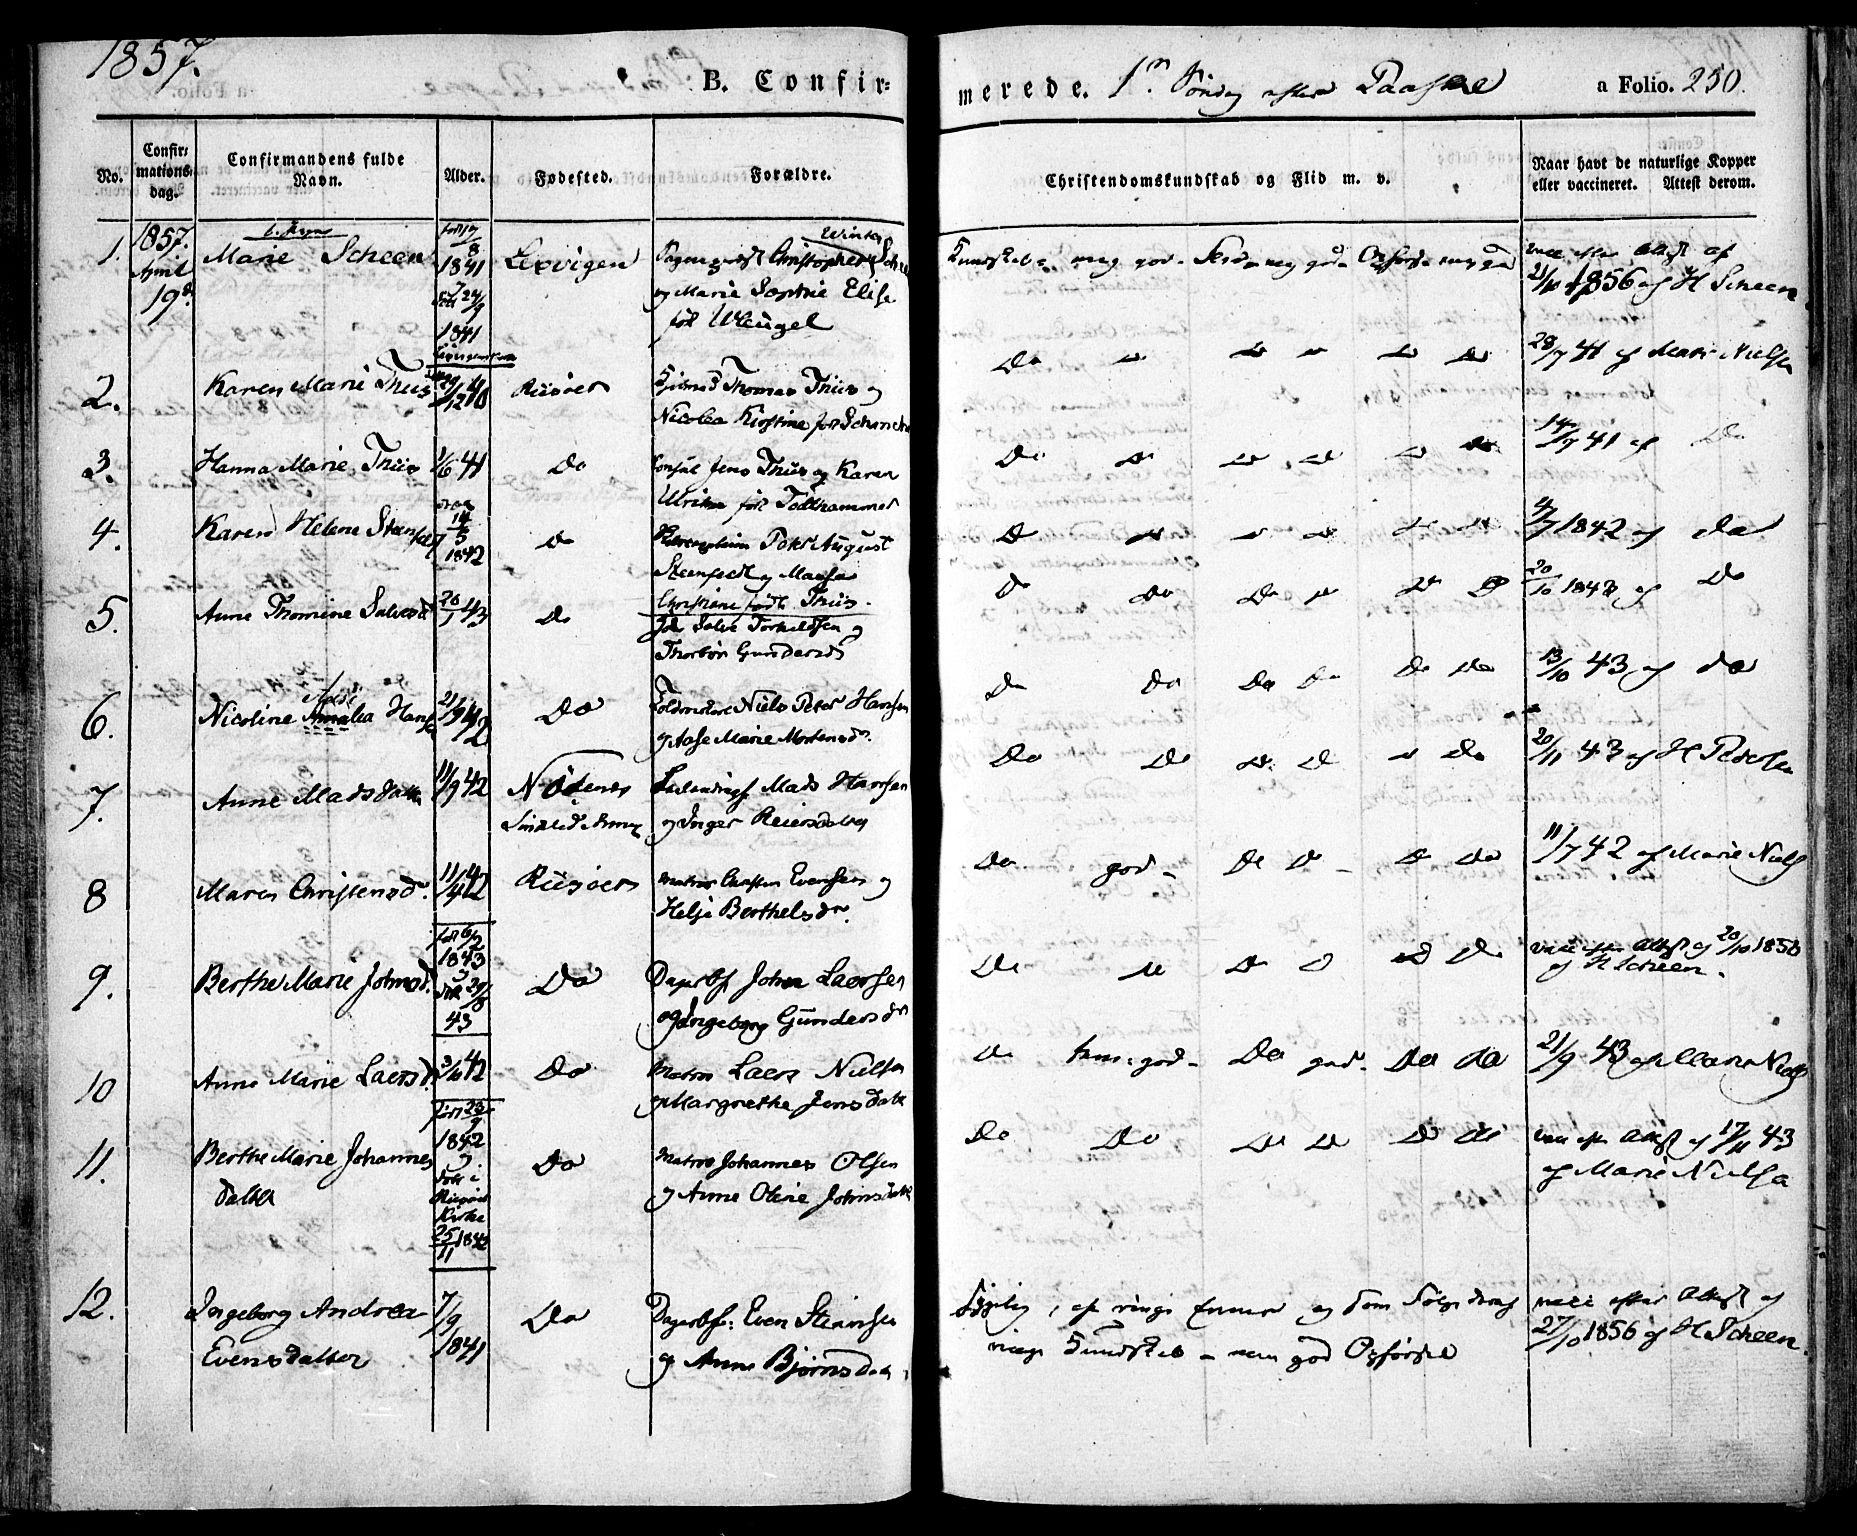 1857.
B. Confir=
merede. 1ste Söndag efter Paaske
a Folio. 250.
No.
Confir=
mations=
dag.
Confirmandens fulde
Navn.
Alder.
Fødested.
Forældre.
Christendomskundskab og Flid m. v.
Naar havt de naturlige Kopper
eller vaccineret. Attest derom.
1.
1857.
April
19de
Marie Scheen
født 17/8
1841
24/9
1841
Winter
Christopher
og Marie Sophie Elise
født Weugel
Kundskab meg god
vacc efter Attest af
21/10 1856 af H Scheen
2.
Karen Marie Thiis
29/12 40
Riisöer
Thomas Thiis og
Nicolea Kirstine født
Do
28/7 41 af Marie Nielsen
3.
Hanna Marie Thiis
1/6 41
Do
Consul Jens Thiis og Karen
Ulrikke født
Do
14/7 41 af Do
4.
Karen Helene
14/5
1842
Do
Peter August
Steenfeldt og Maren
Christine født Thiis.
Do
4/7 1842 af Do
5.
Anne Thomine Salvesd
20/1 43
Do
Salve Torkildsen og
Thorbör Gundersd
Do Do Do
20/10 1843 af Do
6.
Nicoline Amalia Hans
21/9 42
Do
Niels Peter Hansen
og Aase Marie Mortensd.
Do Do Do Do Do Do
13/10 43 af Do
7.
Anne Madsdatter
11/9 42
Mads Hansen
og Inger Reiersdatter
Do Do
20/11 43 af H Pedersen
8
Maren Christensd.
11/9 42
Riisöer
Matros Christen Evensen og
Helje Berthelsdr.
Do god Do Do Do Do
11/7 42 af Marie Niels
9.
Berthe Marie Johnsd.
født 6/2
1843
43
Do
Dagarb. John Laersen
og Ingeborg Gundersdr
Do
vacc efter Attest af 20/10 1856
af H Scheen.
10
Anne Marie Laersd
3/10 42
Do
Matros Laers Nielsen
og Margrethe Jensdatt
Do tem. god Do god Do Do
21/9 43 af Marie Niels
11.
Berthe Marie Johannes
datter
født 23/9
1842
Döbt i
Riisöer
Kirke
25/11 1842
Do
Matros Johannes Olsen
og Anne Oline Johnsdatt
Do Do Do Do Do Do
vacc efter Attest af 17/11 43
af Marie Nielsen
12.
Ingeborg Andrea
Evensdatter
7/9
1841
Do
Dagarb: Even
og Anne Björnsdatt
af ringe Evner og som Fölge deraf
ringe Kundskab - men god Opförsel
vacc efter Attest af
27/10 1856 af H Scheen.